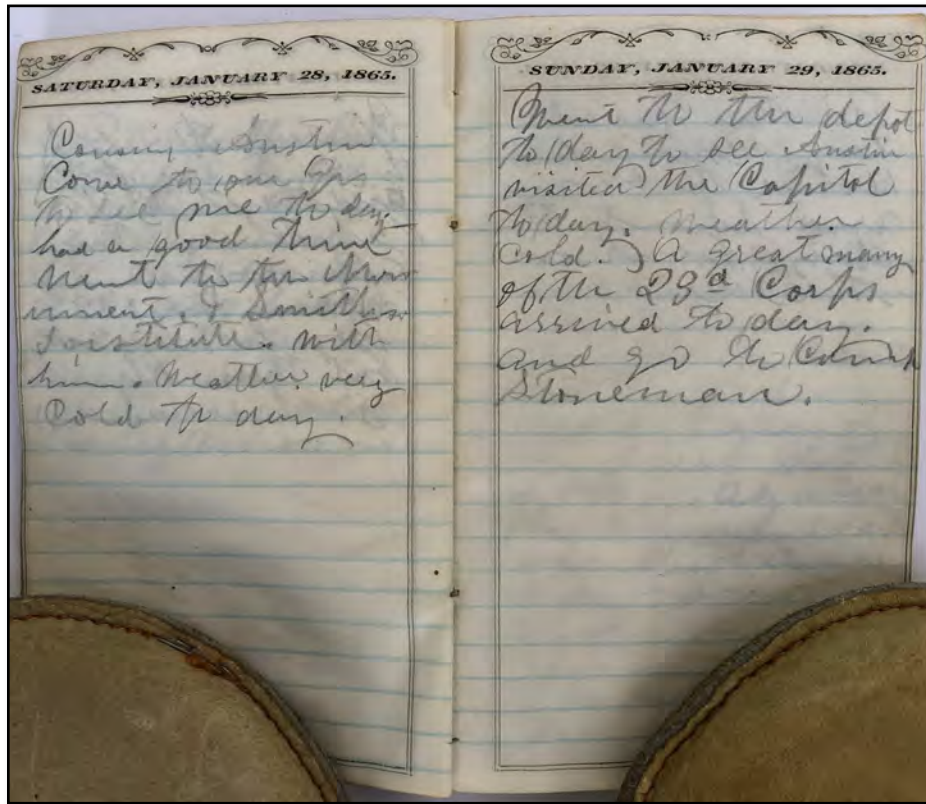 SATURDAY, JANUARY 28, 1865.
Cousin Austin
Come to our Qrs
to see me to day
had a good time
Went to the Monu
ument. & Smiths
Institute. with
him. Weather very
Cold to day.
SUNDAY, JANUARY 29, 1865.
Went to the depot
to day to see Austin
visited the Capitol
to day. Weather
Cold. A great many
of the 23d Corps
arrived to day.
and go to Camp
Stoneman.